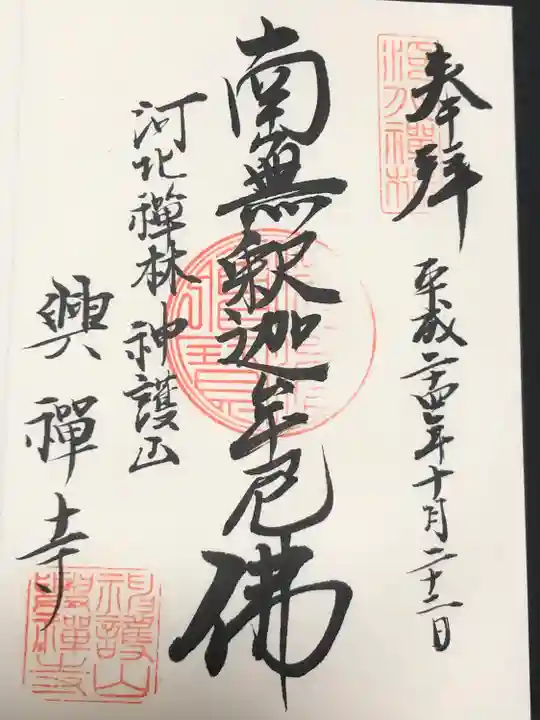 奉拝
平成二十四年十月二十二日
南無釈迦牟尼佛
河北禪林 神護山
興禪寺
河北禪林
神護山
興禪寺